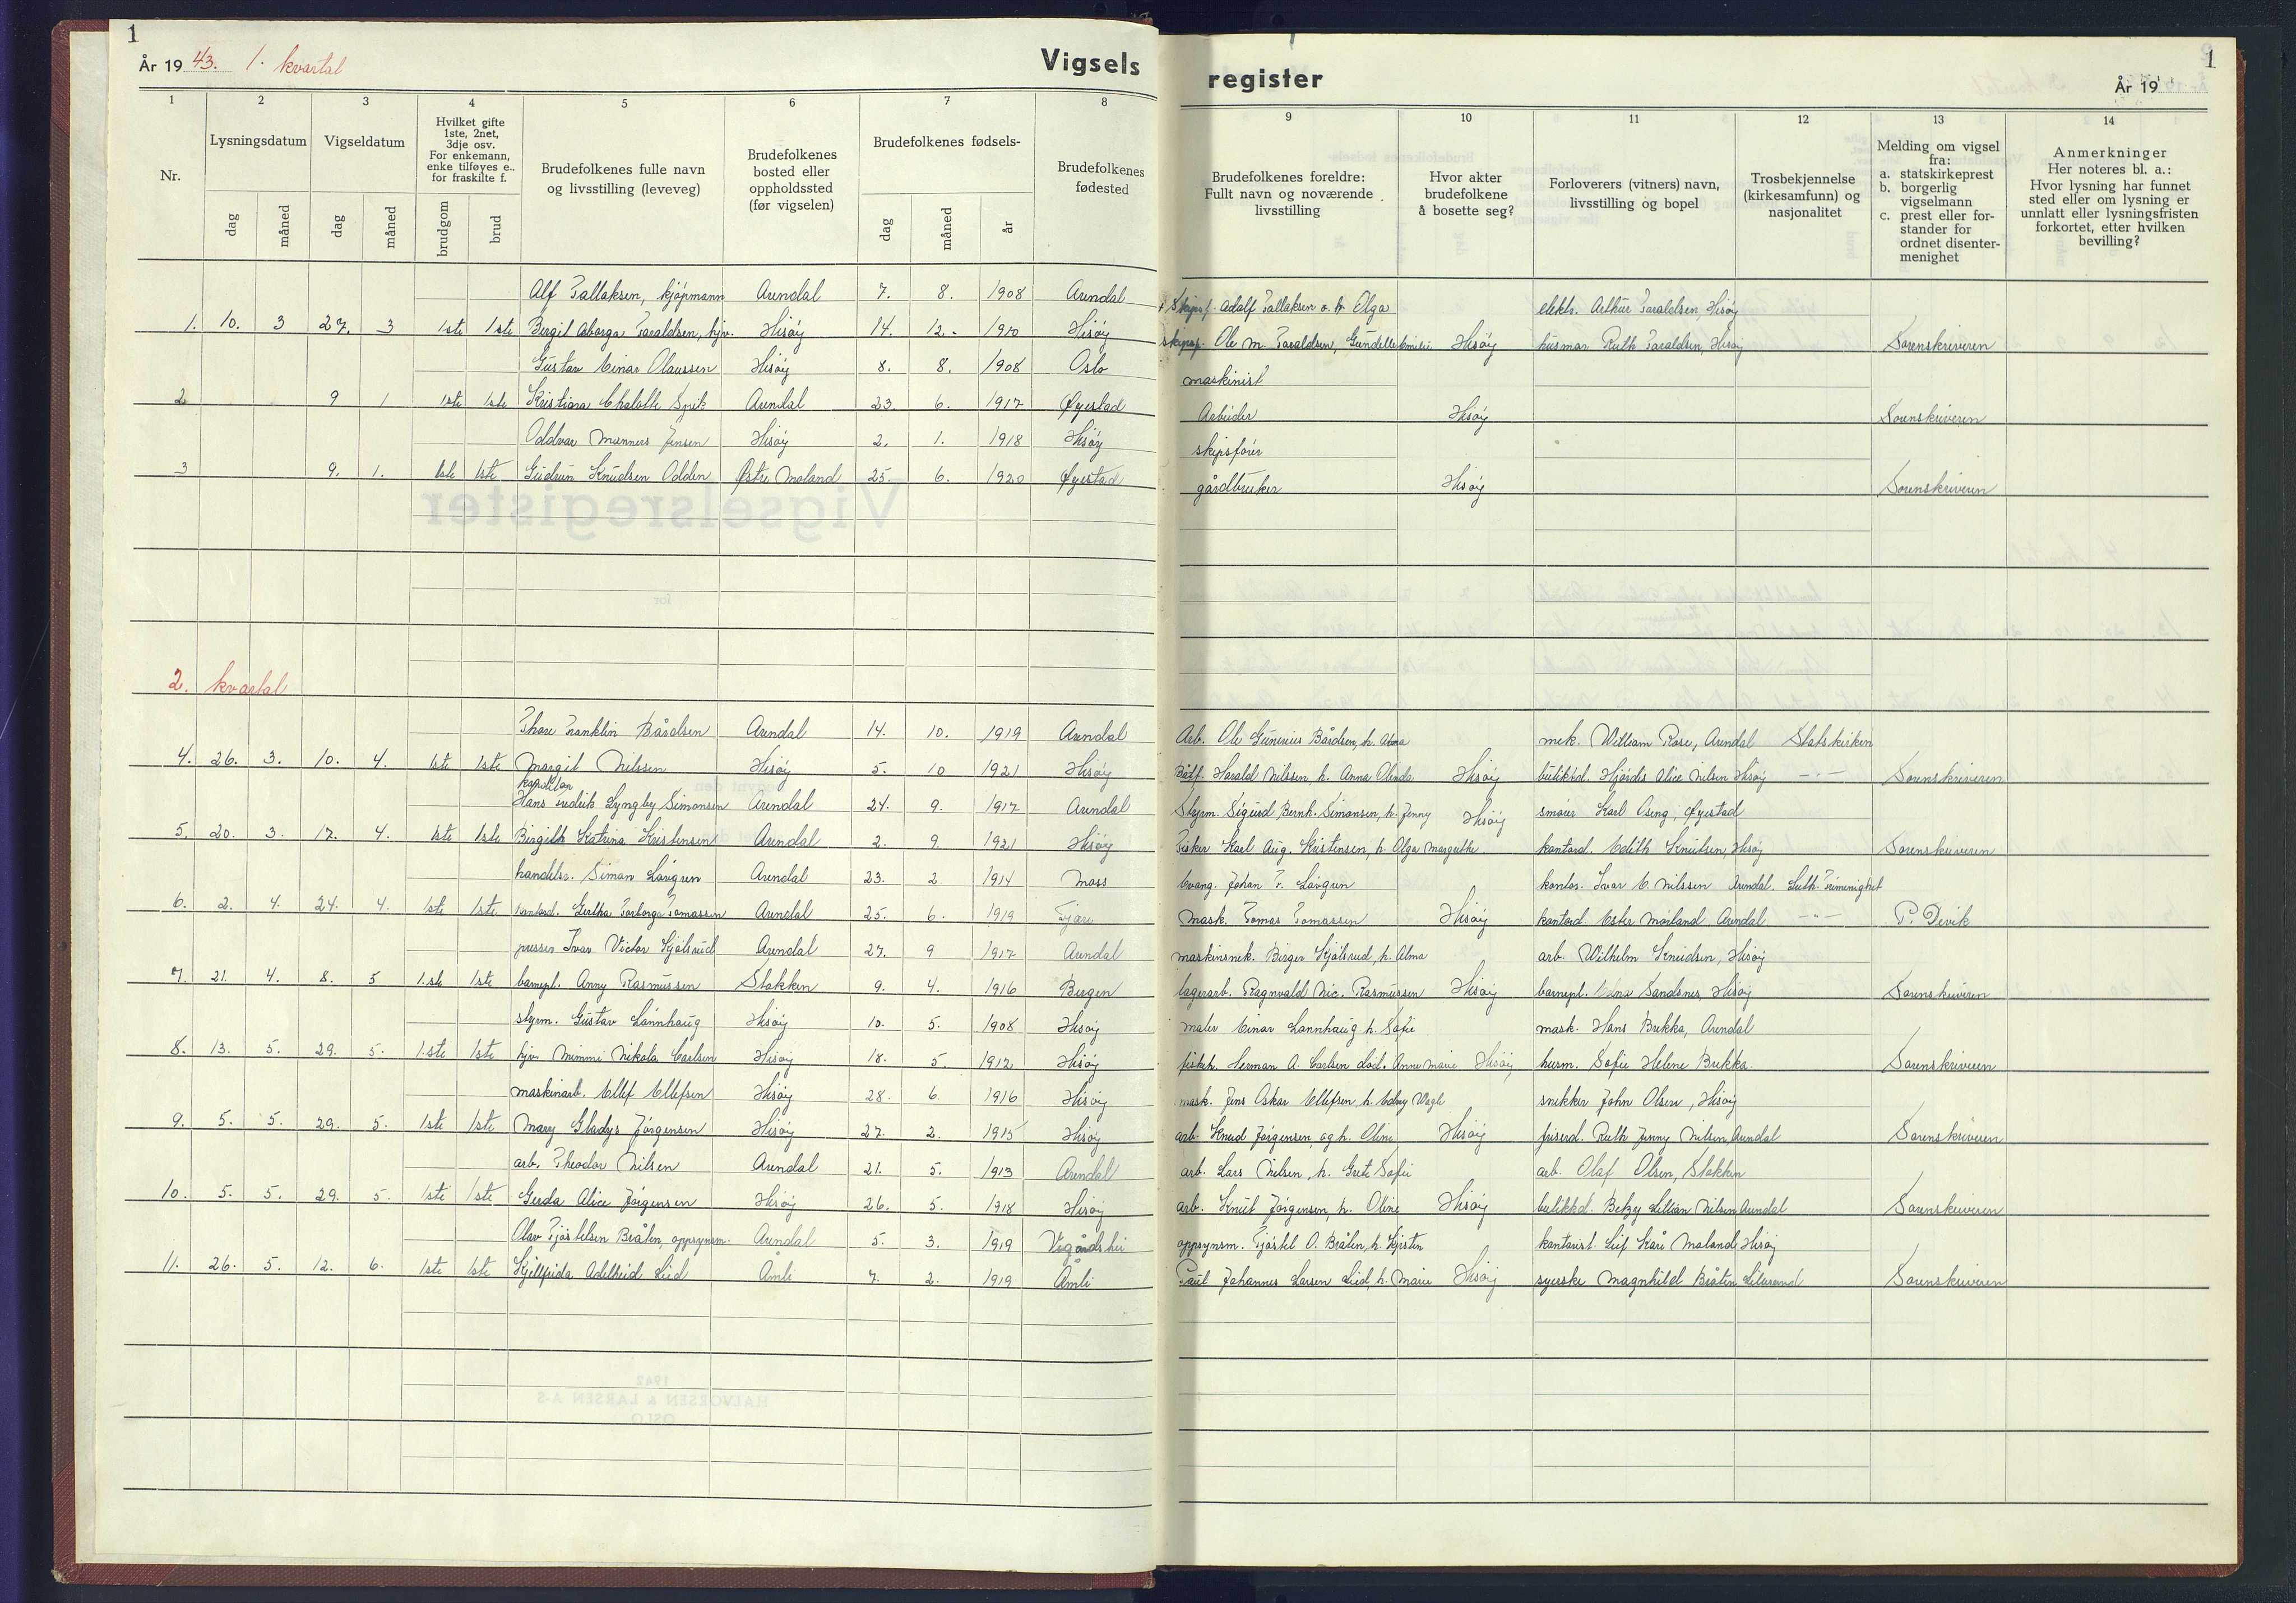 1
År 19 43. 1. kvartal
Vigsels
register
1
År 19
1 2 3 4 5 6 7 8 9 10 11 12 13 14
Nr.
Lysningsdatum
dag måned
Vigseldatum
dag måned
Hvilket gifte
1ste, 2net,
3dje osv.
For enkemann,
enke tilføyes e..
for fraskilte f.
brudgom brud
Brudefolkenes fulle navn
og livsstilling (leveveg)
Brudefolkenes
bosted eller
oppholdssted
(før vigselen)
Brudefolkenes fødsels-
dag måned år
Brudefolkenes
fødested
Brudefolkenes foreldre:
Fullt navn og noværende
livsstilling
Hvor akter
brudefolkene
å bosette seg?
Forloverers (vitners) navn,
livsstilling og bopel
Trosbekjennelse
(kirkesamfunn) og
nasjonalitet
Melding om vigsel
fra:
a. statskirkeprest
b. borgerlig
vigselmann
c. prest eller for-
stander for
ordnet disenter-
menighet
Anmerkninger
Her noteres bl. a.:
Hvor lysning har funnet
sted eller om lysning er
unnlatt eller lysningsfristen
forkortet, etter hvilken
bevilling?
Alf Tallaksen, kjøpmann Arendal 7. 8. 1908 Arendal Adolf Tallaksen o. h. Olga elektr. Arthur Taraldsen, Hisøy
1. 10. 3 27. 3 1ste 1ste Bergit Asborga Taraldsen, hjv. Hisøy 14. 12. 1910 Hisøy Ole M. Taraldsen, Gundelle Emilie Hisøy husmor Ruth Taraldsen, Hisøy Sorenskriveren
Gustav Einar Olaussen Hisøy 8. 8. 1908 Oslo maskinist
2 9 1 1ste 1ste Kristiana Chalotte Arendal 23. 6. 1917 Øyestad Arbeider Hisøy Sorenskriveren
Oddvar Munners Jensen Hisøy 2. 1. 1918 Hisøy skipsfører
3 9. 1. 1ste 1ste Gudrun Knudsen Odden Østre Moland 25. 6. 1920 Øyestad gårdbruker Hisøy Sorenskriveren
2. kvartal
Thore Franklin Bårdsen Arendal 14. 10. 1919 Arendal Arb. Ole Gunerius Bårdsen, h. Alma mek. William Rose, Arendal Statskirken
4. 26. 3. 10. 4. 1ste 1ste Margit Nilssen Hisøy 5. 10 1921 Hisøy Harald Nilssen, h. Anna Olinda Hisøy butikkd. Hjørdis Alice Nilsen Hisøy —"— Sorenskriveren
Hans Fredrik Lyngby Simonsen Arendal 24. 9. 1917 Arendal Styrm. Sigurd Bernh. Simonsen, h. Jenny Hisøy Karl Oseng, Øyestad
5. 20. 3. 17. 4. 1ste 1ste Birgith Katrina Kristensen Arendal 2. 9. 1921 Hisøy Fisker Karl Aug. Kristensen, h. Olga Margrethe. kontord. Edith Knutsen, Hisøy Sorenskriveren
handelsr. Simon Løvgren Arendal 23. 2 1914 Moss Evang. Johan F. Løvgren kontor. Ivar E. Nilssen Arendal. Luth. Frimenighet
6. 2. 4. 24. 4. 1ste 1ste kontord. Gertha Torborga Tomassen Arendal 25. 6. 1919 Fjære Mask. Tomas Tomassen Hisøy kontord. Ester Moland Arendal —"— P. Devik
presser Ivar Victor Kjølsrud Arendal 27. 9 1917 Arendal maskinsnek. Birger Kjølsrud, h. Alma arb. Wilhelm Knudsen, Hisøy
7. 21. 4. 8. 5 1.ste 1ste barnepl. Anny Rasmussen Stokken 9. 4. 1916 Bergen lagerarb. Ragnvald Nic. Rasmussen Hisøy barnepl. Edna Sandsnes, Hisøy Sorenskriveren
styrm. Gustav Lønnhaug Hisøy 10. 5. 1908 Hisøy maler Einar Lønnhaug h. Sofie mask. Hans Brekka, Arendal
8. 13. 5. 29. 5. 1.ste 1ste hjv. Mimmi Nikola Carlsen Hisøy 18. 5. 1912 Hisøy fiskh. Herman A. Carlsen død. Anne Marie Hisøy husm. Sofie Helene Brekka. Sorenskriveren
maskinarb. Ellef Ellefsen Hisøy 28. 6. 1916 Hisøy mask. Jens Oskar Ellefsen h. Edny Wagle snekker John Olsen, Hisøy
9. 5. 5. 29. 5. 1ste 1ste Mary Gladys Jørgensen Hisøy 27. 2. 1915 Hisøy arb. Knud Jørgensen og h. Oline Hisøy friserd. Ruth Jenny Nilsen, Arendal Sorenskriveren
arb. Theodor Nilsen Arendal 21. 5. 1913 Arendal arb. Lars Nilsen, h. Grete Sofie arb. Olaf Olsen, Stokken
10. 5. 5. 29. 5. 1ste 1ste Gerda Alice Jørgensen Hisøy 26. 5. 1918 Hisøy arb. Knut Jørgensen, h. Oline Hisøy butikkd. Betzy Lillian Nilsen Arendal Sorenskriveren
Olav Tjøstelsen Bråten, oppsynsm. Arendal 5. 3. 1919 Vegårdshei oppsynsm. Tjøstel O. Bråten, h. Kjersten kontorist. Leif Kåre Moland Hisøy
11. 26. 5. 12. 6. 1ste 1ste Kjellfrida Adelheid Lied Åmli 7. 2. 1919 Åmli Paul Johannes Larsen Lied, h. Marie Hisøy syerske Magnhild Bråten Lillesand Sorenskriveren